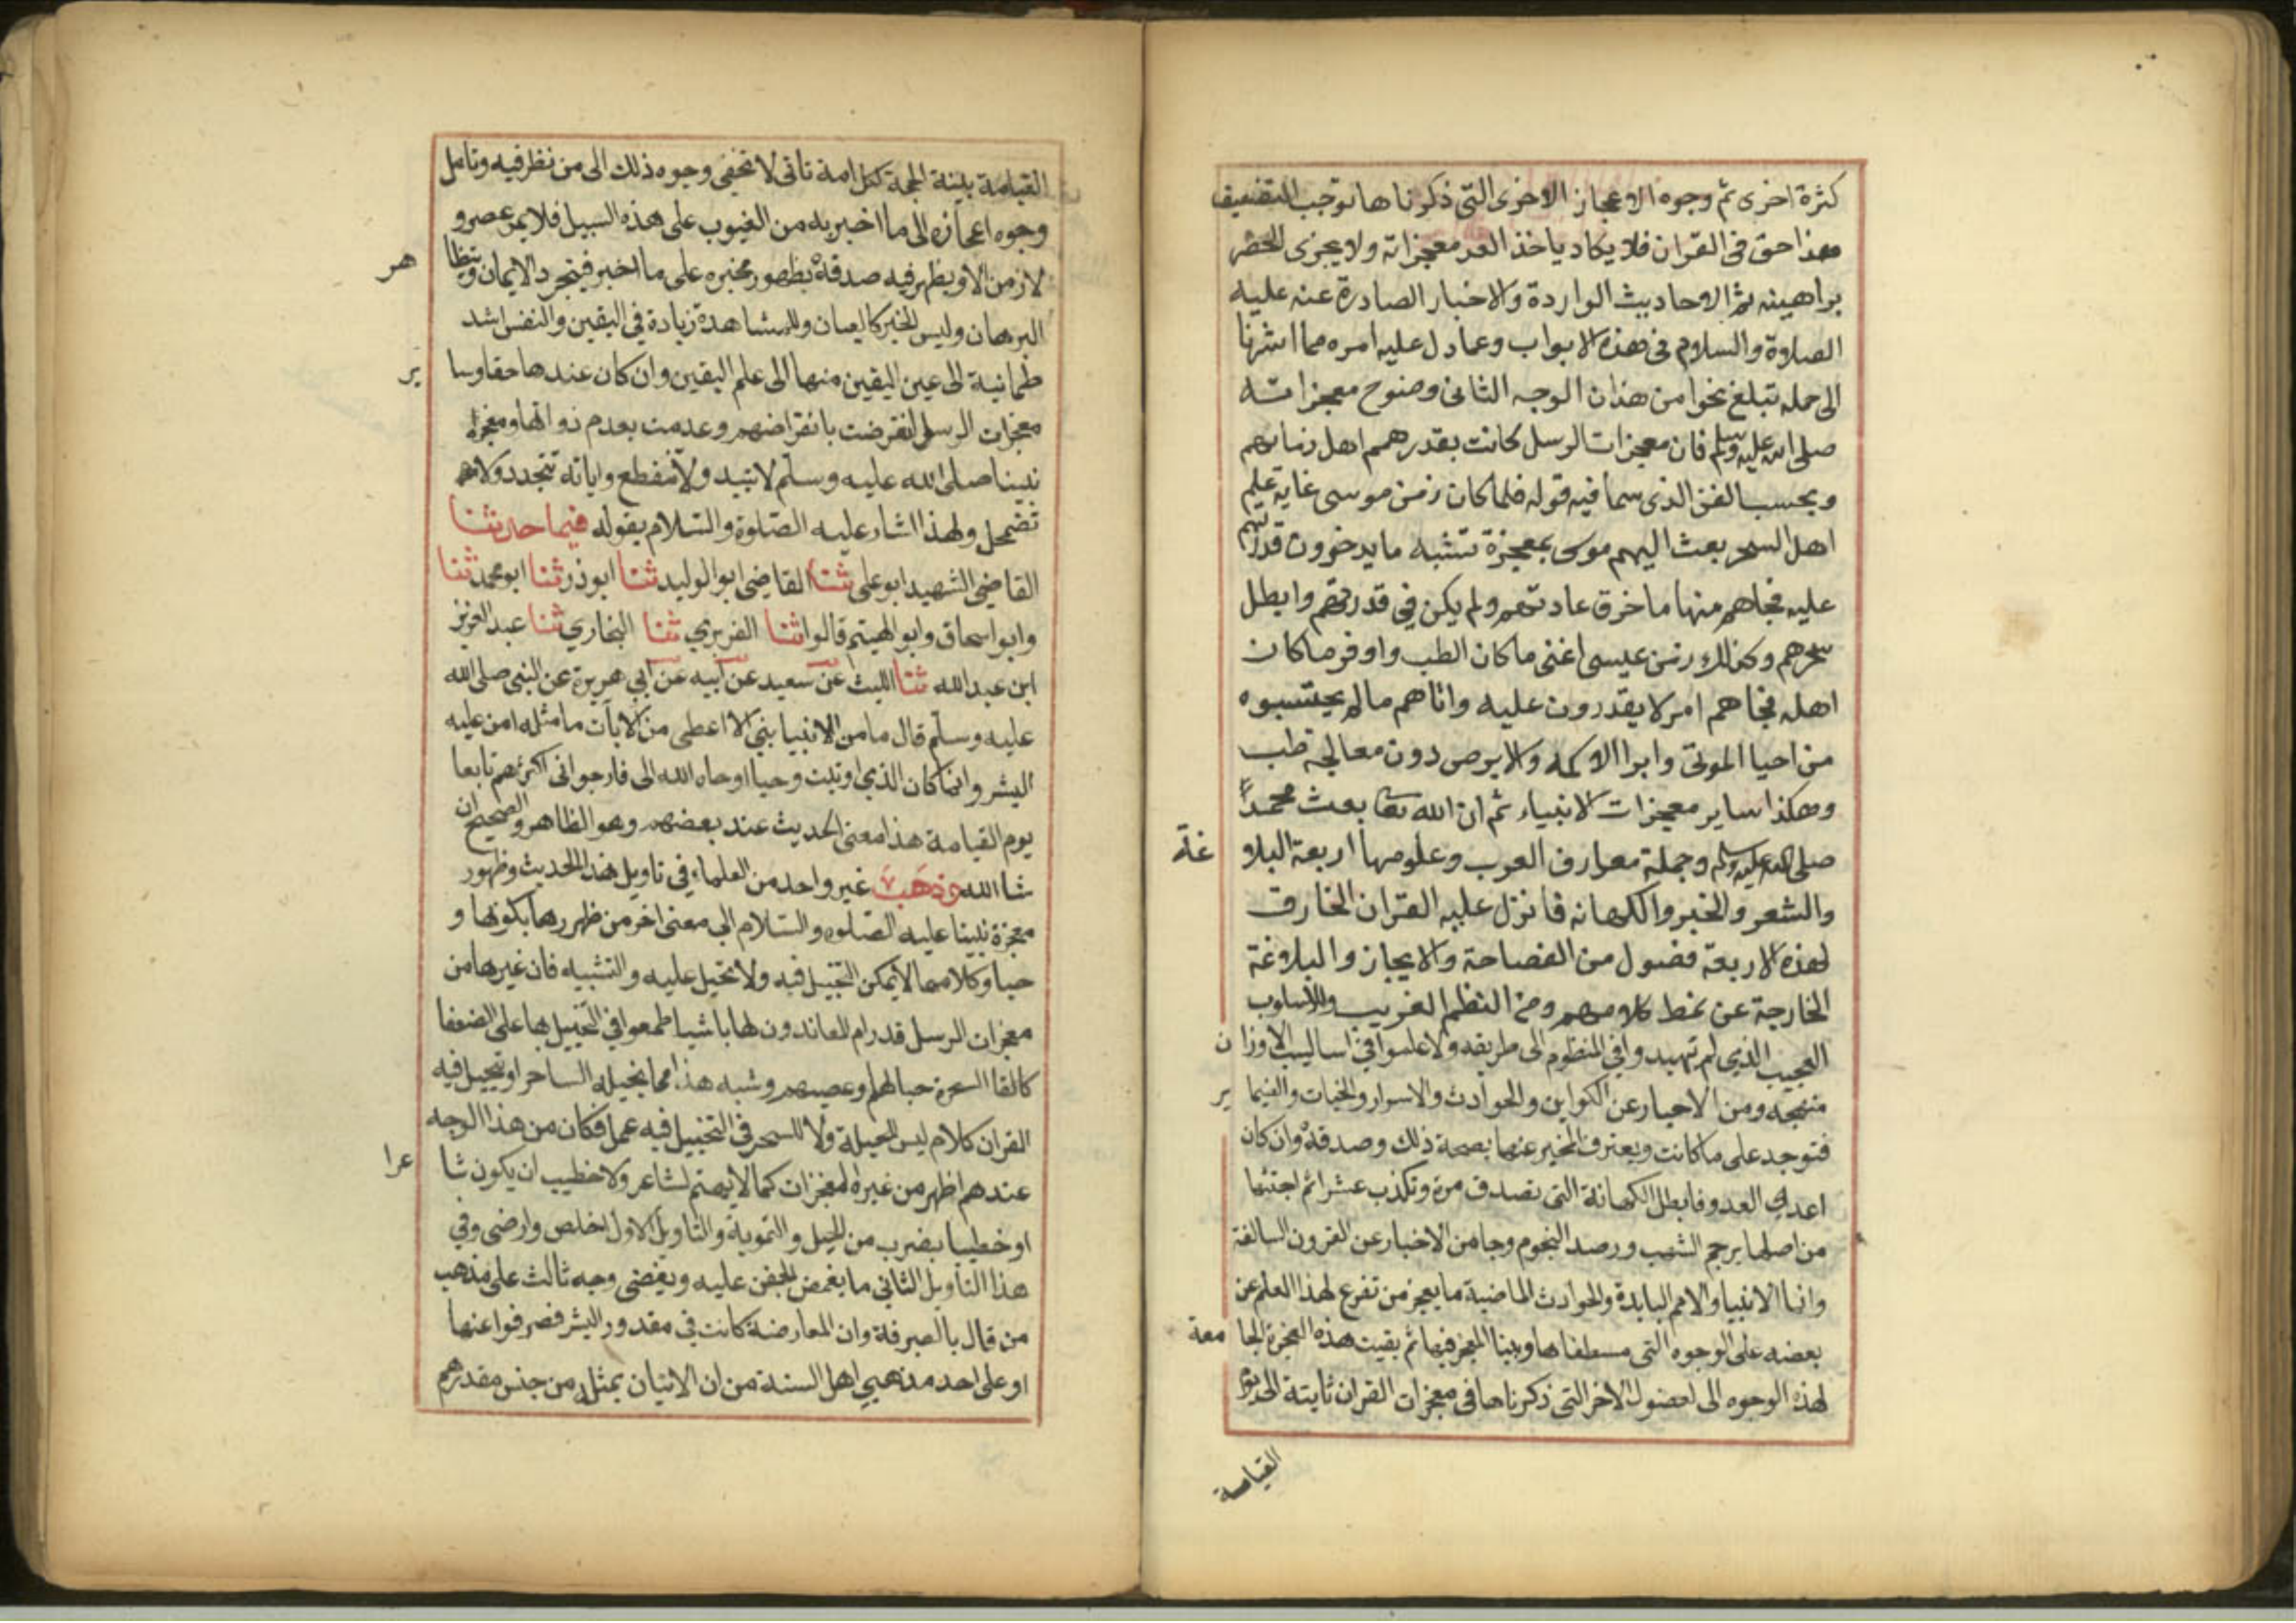 كثرة اخرى ثم وجوه الاعجاز الاخرى التى ذكرناها توجب التضعيف
هذا حق فى القران فلا يكاد ياخذ العد معجزاته ولا يحوى الحصر
براهينه ثم الاحاديث الواردة والاخبار الصادرة عنه عليه
الصلاة والسلام فى هذه الابواب وعما دل عليه امره مما اشرنا
الى جمله تبلغ نحوا من هذان الوجه الثانى وضوح معجزاته
صلى الله عليه وسلم فان معجزات الرسل كانت بقدر همم اهل زمانهم
وبحسب الفن الذى سما فيه قوله فلما كان زمن موسى غاية علم
اهل السحر بعث اليهم موسى بمعجزة تشبه ما يدعون قدرتهم
عليه فجاهم منها ما خرق عادتهم ولم يكن فى قدرتهم وابطل
سحرهم وكذلك زمن عيسى اغنى ما كان الطب واوفر ما كان
اهله فجاهم امر لا يقدرون عليه واتاهم ما لم يحتسبوه
من احيا الموتى وابرا الاكمه والابرص دون معالجة طب
وهكذا ساير معجزات الانبياء ثم ان الله تعا بعث محمدا
صلى الله عليه وسلم وجملة معارف العرب وعلومها اربعة البلا غة
والشعر والخبر والكهانه فانزل عليه القران الخارق
لهذه الاربعة فصول من الفصاحة والايجاز والبلاغة
الخارجة عن نمط كلامهم ومن النظم الغريب والاسلوب
العجيب الذي لم تهيد وافي المنظوم الى طريقه ولا علموا في اساليب الاوزا ن
منهجه ومن الاخبار عن الكواين والحوادث والاسرار والخبات والضما ير
فتوجد على ما كانت ويعترف المخبر عنها بصحة ذلك وصدقه وان كان
اعدي العدو فابطل الكهانة التى تصدق مرة وتكذب عشرا ثم اجتثها
من اصلها برجم الشهب ورصد النجوم وجا من الاخبار عن القرون السالفة
وانبا الانبيا والامم البايدة والحوادث الماضية ما يعجز من تفرغ لهذا العلم عن
بعضه على الوجوه التى بسطناها وبينا المعجز فيها ثم بقيت هذه المعجزة الجا معة
لهذه الوجوه الى لفصول الاخر التى ذكرناها فى معجزات القران ثابتة الى يوم
القيامة
القيامة بينة الحجة لكل امة تاتى لا تخفى وجوه ذلك الى من نظر فيه وتامل
وجوه اعجازه الى ما اخبر به من الغيوب على هذه السبيل فلا يمر عصر و
لا زمن الا ويظهر فيه صدقه بظهور مخبره على ما اخبر فيتجرد الايمان ويتظا هر
البرهان وليس الخبر كالعيان وللمشاهدة زيادة في اليقين والنفس اشد
طمانية الى عين اليقين منها الى علم اليقين وان كان عندها حقا وسا ير
معجزات الرسل انقرضت بانقراضهم وعدمت بعدم ذواتها ومعجزة
نبينا صلى الله عليه وسلم لا تبيد ولا تنقطع واياته تتجدد ولا
تضمحل ولهذا اشار عليه الصلوة والسلام بقوله فيما حدثنا
القاضي الشهيد ابو على ثنا القاضي ابو الوليد ثنا ابو ذر ثنا ابو محمد ثنا
وابو اسحاق وابو الهيثم قالوا ثنا الفربري ثنا البخاري ثنا عبد العزيز
ابن عبد الله ثنا الليث عن سعيد عن ابيه عن ابي هريرة عن النبي صلى الله
عليه وسلم قال ما من الانبيا نبي الا اعطى من الايات ما مثله امن عليه
البشر وانما كان الذي اوتيت وحيا اوحاه الله الى فارجوا انى اكثرهم تابعا
يوم القيامة هذا معنى الحديث عند بعضهم وهو الظاهر والصحيح ان
شا الله وذهب غير واحد من العلماء في تاويل هذا الحديث وظهور
معجزة نبينا عليه الصلوة والسلام الى معنى اخر من ظهورها بكونها و
حيا وكلاما لا يمكن التخيل فيه ولا تحيل عليه والتشبيه فان غيرها من
معجزات الرسل قدرام المعاندون لها باشيا طمعوا في التخييل بها على الضعفا
كالقا السحرة حبالهم وعصيهم وشبه هذا مما يخيله الساحر او يتحيل فيه
القران كلام ليس للحيلة ولا للسحر في التخييل فيه عمل فكان من هذا الوجه
عندهم اظهر من غيره المعجزات كما لا يهتم لشاعر ولا خطيب ان يكون شا عرا
او خطيبا بضرب من الحيل والتموية والتاويل الاول اخلص وارضى وفي
هذا التاويل الثاني ما يغمض الجفن عليه ويغضى وجه ثالث على مذهب
من قال بالصرفة وان المعارضة كانت في مقدور البشر فصرفوا عنها
او على احد مذهبي اهل السنة من ان الاتيان بمثله من جنس مقدرهم